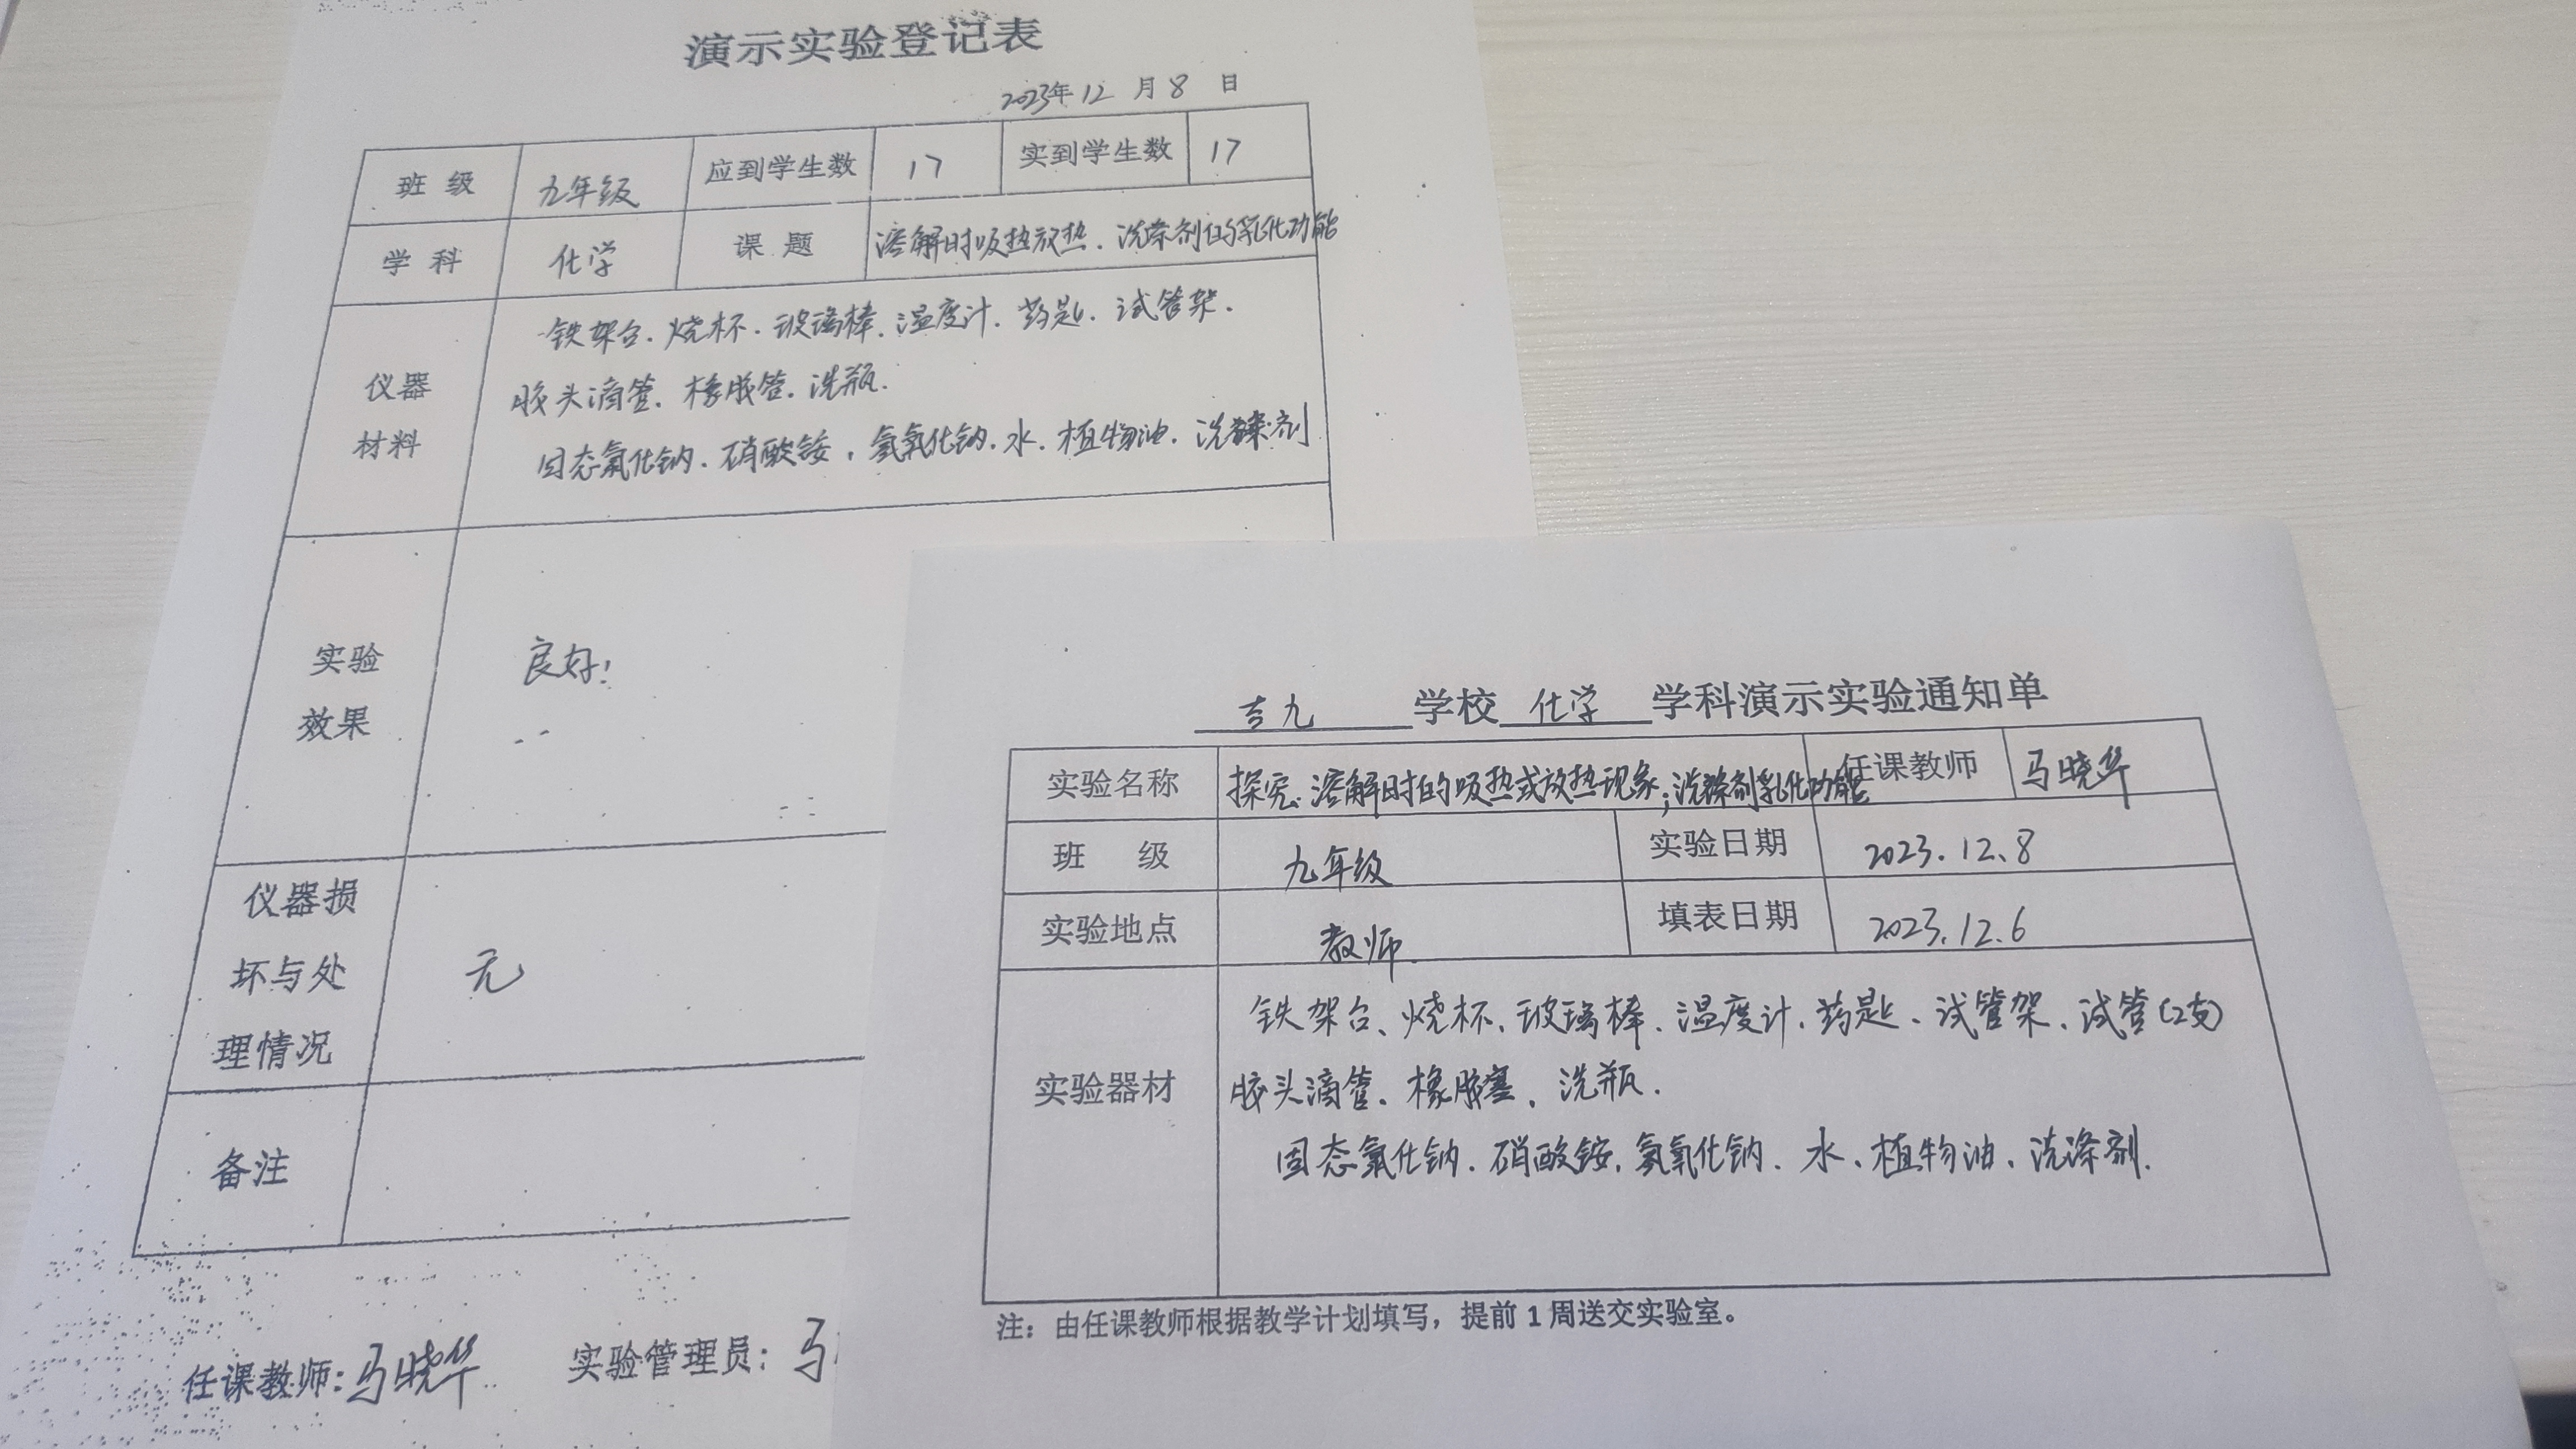 演示实验登记表
2023年12月8日
班级 九年级 应到学生数 17 实到学生数 17
学科 化学 课题 溶解时吸热放热.洗涤剂的乳化功能
仪器材料
铁架台.烧杯.玻璃棒.温度计.药匙.试管架.
胶头滴管.橡胶管.洗瓶.
固态氯化钠.硝酸铵,氢氧化钠.水.植物油.洗涤剂
实验效果 良好!
仪器损坏与处理情况 无
备注
任课教师:马晓华 实验管理员:马
吉九 学校 化学 学科演示实验通知单
实验名称 探究.溶解时的吸热或放热现象;洗涤剂乳化功能 任课教师 马晓华
班级 九年级 实验日期 2023.12.8
实验地点 教师. 填表日期 2023.12.6
实验器材
铁架台、烧杯、玻璃棒.温度计.药匙、试管架、试管(2支)
胶头滴管、橡胶塞、洗瓶.
固态氯化钠.硝酸铵.氢氧化钠.水、植物油、洗涤剂.
注:由任课教师根据教学计划填写,提前1周送交实验室。